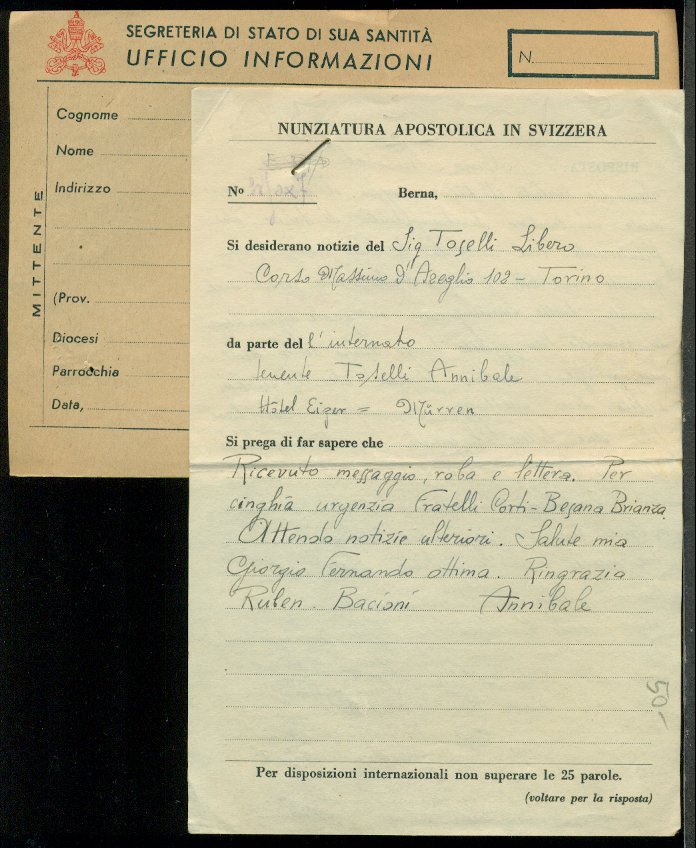 SEGRETERIA DI STATO DI SUA SANTITÀ
UFFICIO INFORMAZIONI
N.
MITTENTE
Cognome
Nome
Indirizzo
(Prov.
Diocesi
Parrocchia
Data,
NUNZIATURA APOSTOLICA IN SVIZZERA
Nº
Berna,
Si desiderano notizie del Sig Toselli Libero
Corso Massimo d'Azeglio 102 - Torino
da parte del l'internato
tenente Toselli Annibale
Hôtel Eiger = Mürren
Si prega di far sapere che
Ricevuto messaggio, roba e lettera. Per
cinghia urgenzia Fratelli Corti-Besana Brianza.
Attendo notizie ulteriori. Salute mia
Giorgio Fernando ottima. Ringrazia
Ruben. Bacioni Annibale
50,-
Per disposizioni internazionali non superare le 25 parole.
(voltare per la risposta)